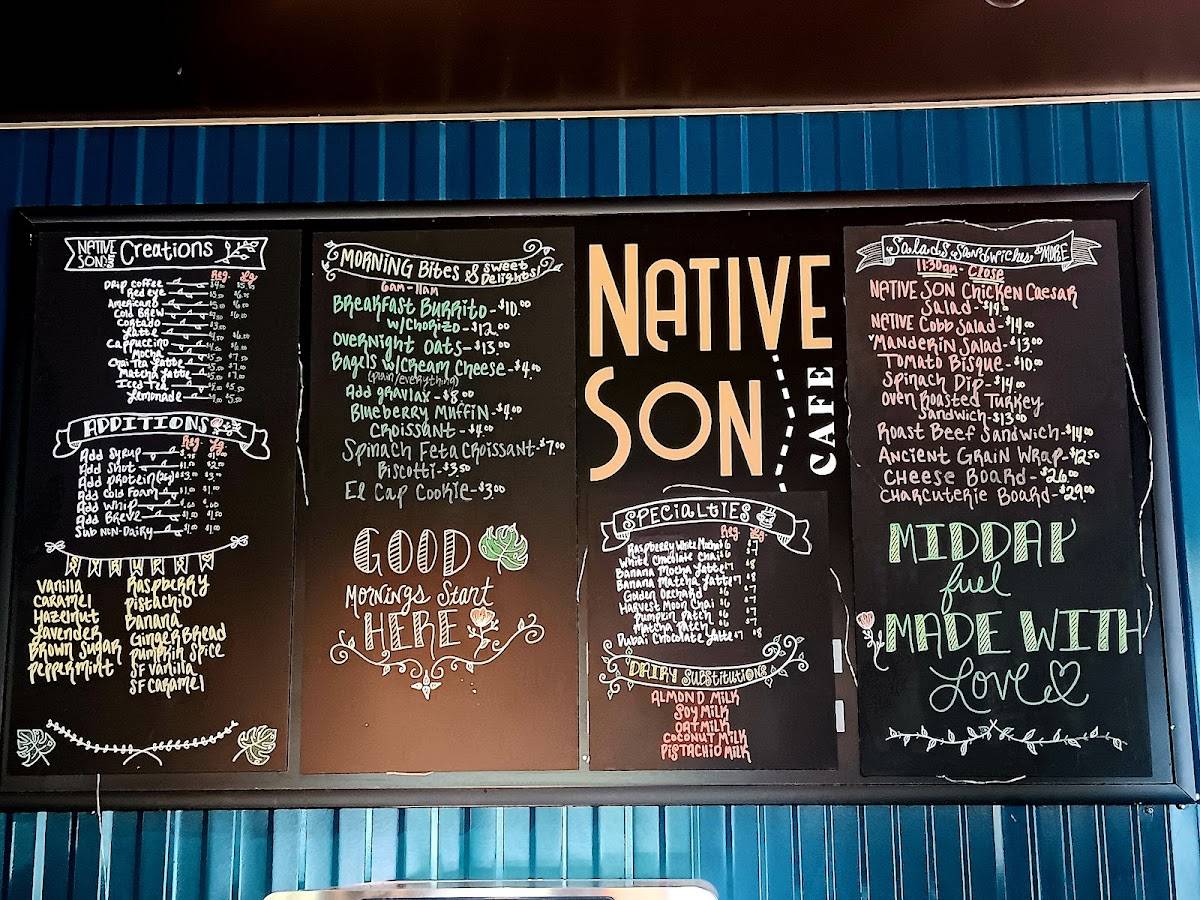 NATIVE SONS Creations
Reg. Lg.
Drip Coffee
Red eye
Americano
Cold Brew
Cortado
Latte
Cappuccino
Mocha
Chai Tea Latte
Matcha Latte
Iced Tea
Lemonade
ADDITIONS
Reg. Lg.
Add Syrup
Add Shot
Add protein
Add Cold Foam
Add Whip
Add Breve
Sub Non-Dairy
FLAVORS
Vanilla
Caramel
Hazelnut
Lavender
Brown Sugar
Peppermint
Raspberry
Pistachio
Banana
GingerBread
Pumpkin Spice
SF Vanilla
SF Caramel
MORNING Bites & Sweet Delights!
6am - 11am
Breakfast Burrito - $10.00
w/chorizo - $12.00
Overnight Oats - $13.00
Bagels w/Cream Cheese - $4.00
(plain/everything)
Add gravlax - $8.00
Blueberry Muffin - $4.00
Croissant - $4.00
Spinach Feta Croissant - $7.00
Biscotti - $3.50
El Cap Cookie - $3.00
GOOD
Mornings Start
HERE
NATIVE
SON
CAFE
SPECIALTIES
Reg. Lg.
Raspberry White Mocha $6 $7
White Chocolate Chai $6 $7
Banana Mocha Latte $7 $8
Banana Matcha Latte $7 $8
Golden Orchard $6 $7
Harvest Moon Chai $6 $7
Pumpkin Patch $6 $7
Matcha Patch $6 $7
Dubai Chocolate Latte $7 $8
DAIRY Substitutions
ALMOND MILK
SOY MILK
OAT MILK
COCONUT MILK
PISTACHIO MILK
Salads, Sandwiches & MORE
11:30am - Close
NATIVE SON Chicken Caesar
Salad - $14.00
NATIVE Cobb Salad - $14.00
Manderin Salad - $13.00
Tomato Bisque - $10.00
Spinach Dip - $14.00
Oven Roasted Turkey
Sandwich - $13.00
Roast Beef Sandwich - $14.00
Ancient Grain Wrap - $12.50
Cheese Board - $26.00
Charcuterie Board - $29.00
MIDDAY
fuel
MADE WITH
Love